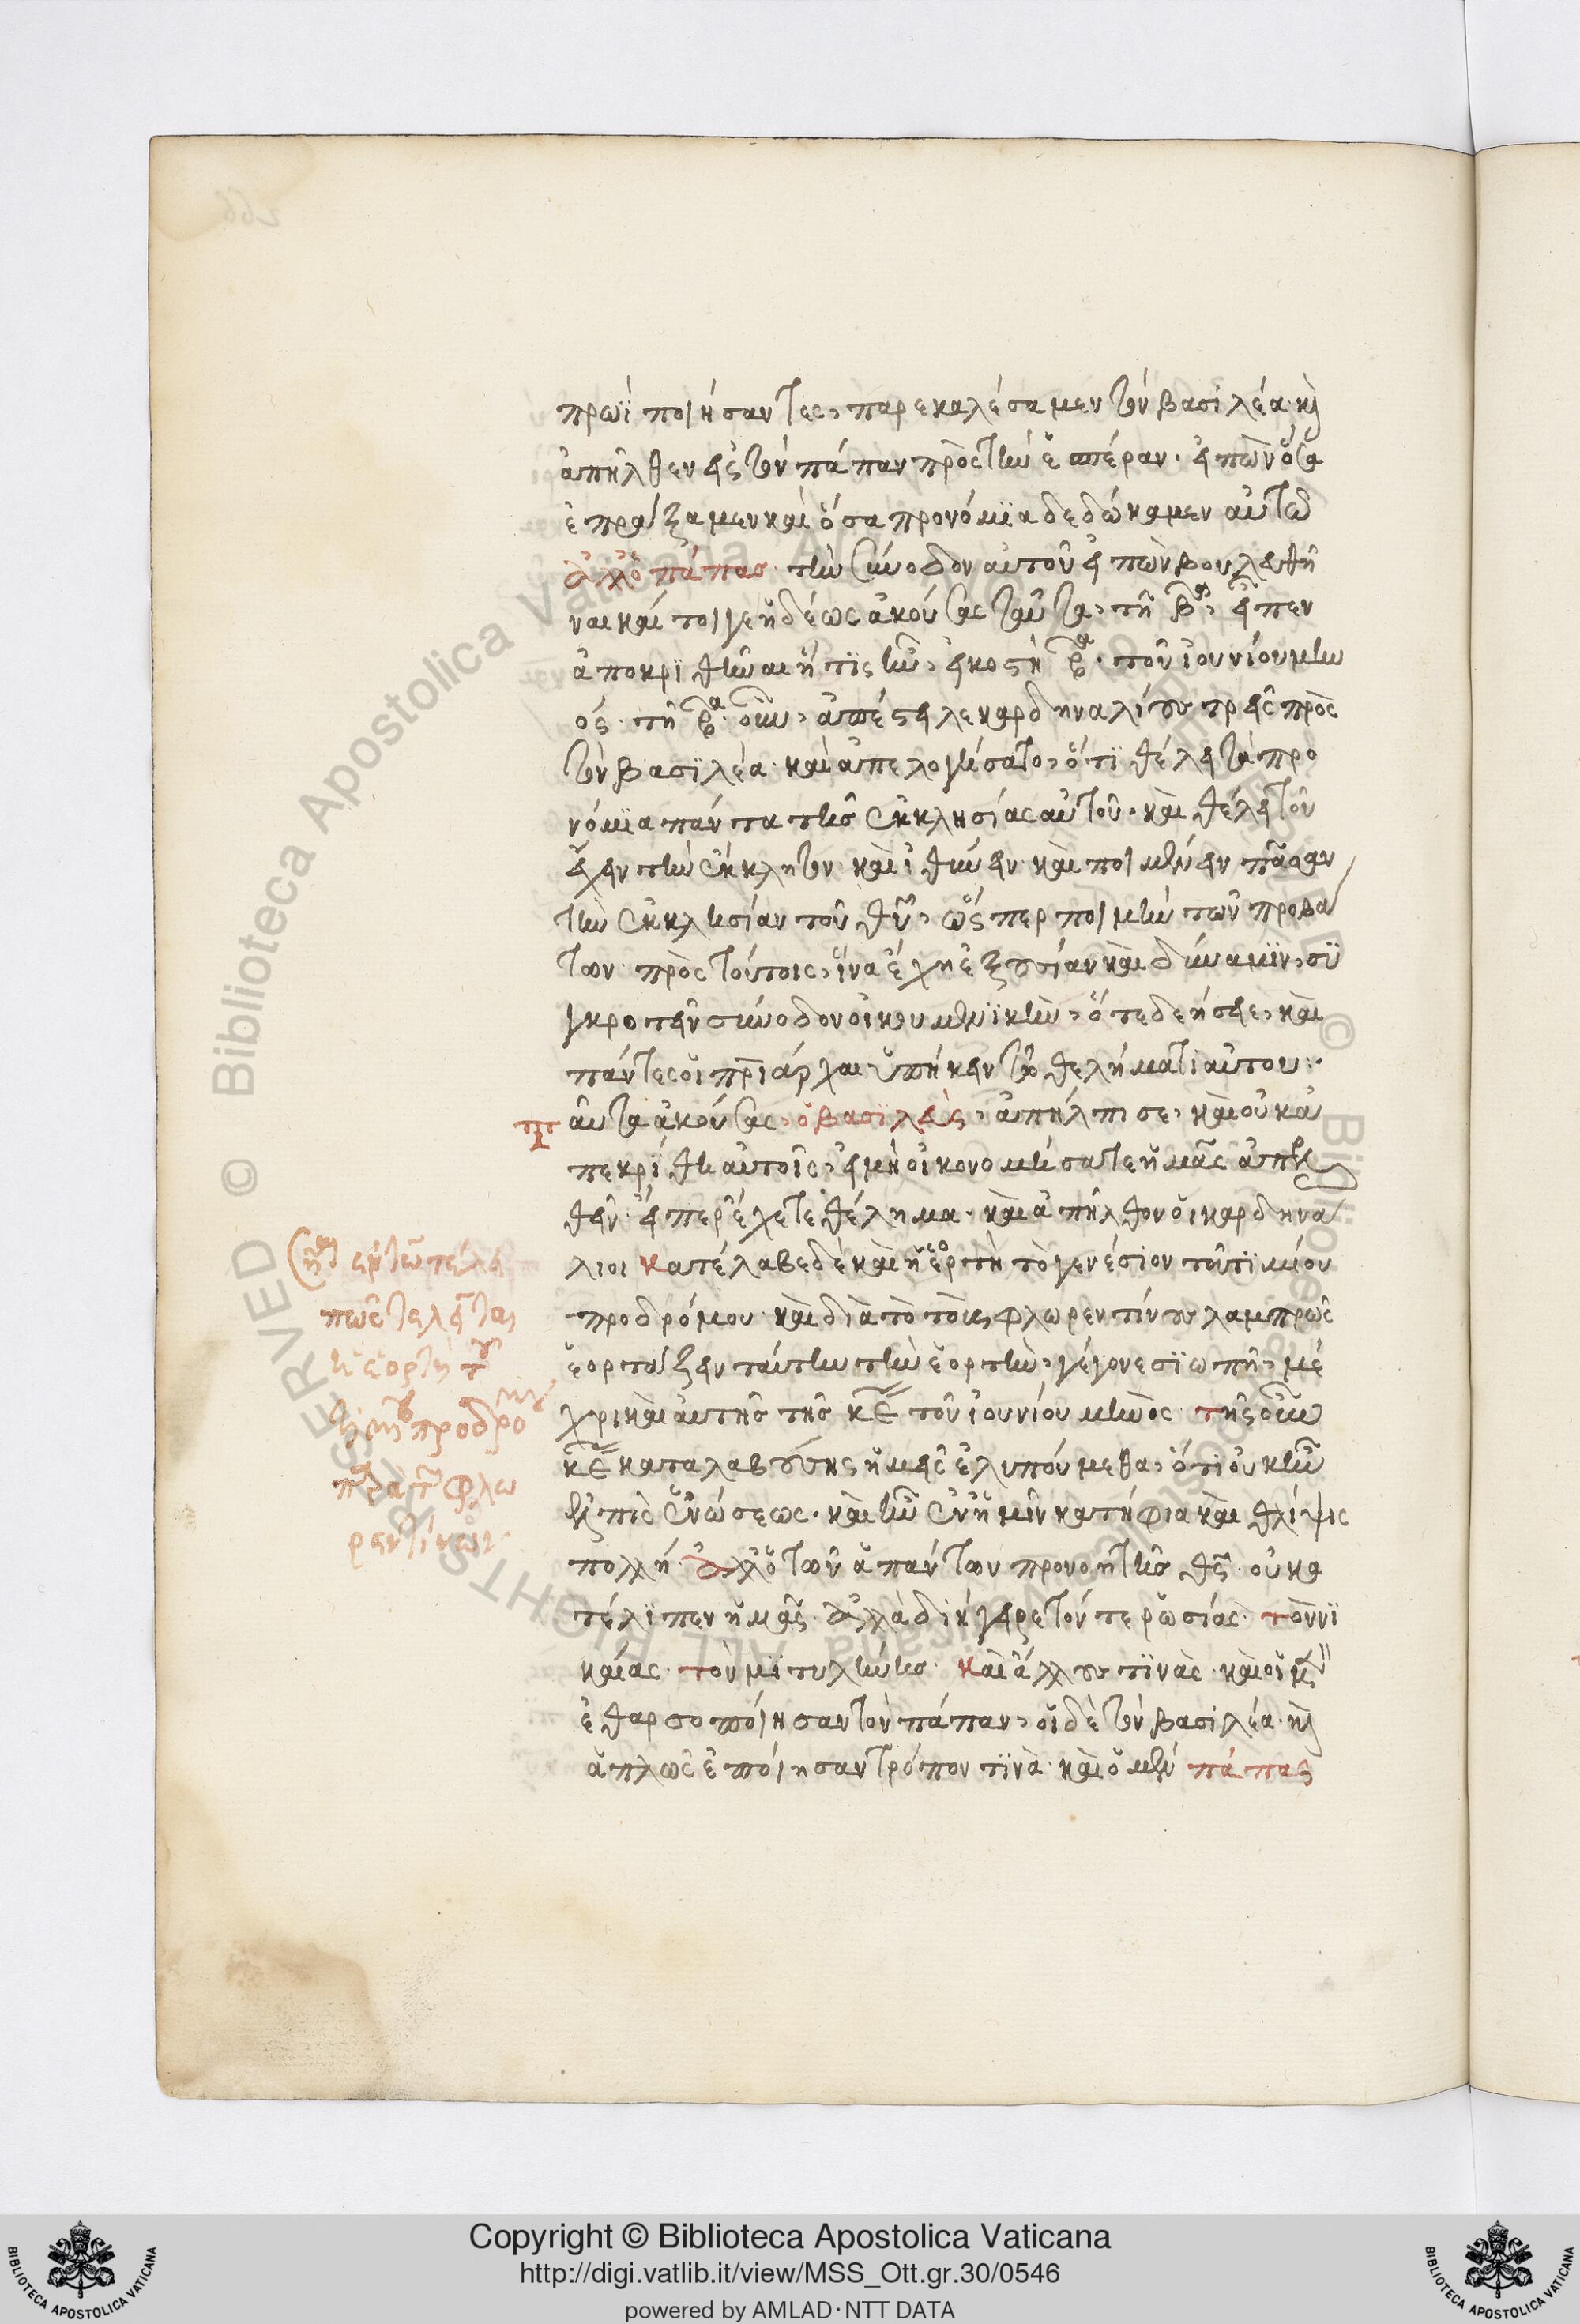 πρωῒ ποιήσαντες, παρεκαλέσαμεν τὸν βασιλέα· κ(αὶ)
ἀπῆλθεν εἰς τὸν πάπαν πρὸς τὴν ἑσπέραν· εἰπὼν ὅσα
ἐπράξαμεν καὶ ὅσα προνόμια δεδώκαμεν αὐτῶ
ἀλλ' ὁ πάπας τὴν σύνοδον αὐτοῦ εἰπὼν βουλευθῆ
ναι καί τοι γε ἡδέως ἀκούσας ταῦτα, τῆ β͞α, εἶπεν
ἀποκριθῆναι ἥτις ἦν, εἰκοστὴ β͞α· τοῦ ἰουνίου μην
ός· τῆ β͞α οὖν, ἀπέστειλε καρδηναλίους τρεῖς πρὸς
τὸν βασιλέα· καὶ ἀπελογήσατο, ὅτι θέλει τὰ προ
νόμια πάντα τῆς ἐκκλησίας αὐτοῦ· καὶ θέλει τοῦ
ἔχειν τὴν ἔκκλητον καὶ ἰθύνειν καὶ ποιμαίνειν πᾶσαν
τὴν ἐκκλησίαν τοῦ θ͞υ, ὥσπερ ποιμὴν τῶν προβά
των· πρὸς τούτοις, ἵνα ἔχη ἐξουσίαν καὶ δύναμιν, συ
γκροτεῖν σύνοδον οἰκουμενικὴν, ὅτε δεήσει, καὶ
πάντες οἱ πριάρχαι ὑπήκειν τῶ θελήματι αὐτοῦ:·
Ταῦτα ἀκούσας, ὁ βασιλεὺς, ἀπήλπισε, καὶ οὐκ ἀ
πεκρίθη αὐτοῖς, εἰ μὴ οἰκονομήσατε ἡμᾶς ἀπελ
θεῖν· εἴπερ ἔχετε θέλημα· καὶ ἀπῆλθον οἱ καρδηνά
λιοι κατέλαβε δὲ καὶ ἡ ἑορτὴ τὸ γενέσιον τοῦ τιμίου
προδρόμου· καὶ διὰ τὸ τοὺς φλωρεντίνους λαμπρῶς
ἑορτάζειν ταύτην τὴν ἑορτὴν, γέγονε σιωπὴ, μέ
χρι καὶ αὐτῆς τῆς κ͞ε τοῦ ἰουνίου μηνός· τῆς οὖν
κ͞ε καταλαβούσης, ἡμεῖς ἐλυπούμεθα, ὅτι οὐκ ἦν
ἐλπὶς ἑνώσεως· καὶ ἦν ἐν ἡμῖν κατήφια καὶ θλίψις
πολλή· ἀλλ' ὁ τῶν ἁπάντων προνοητὴς θ͞ς· οὐ κα
τέλιπεν ἡμᾶς· ἀλλὰ διήγειρε τόν τε ῥωσίας· τὸν νι
καίας· τὸν μιτυλήνης· καὶ ἄλλους τινὰς· καὶ οἱ μ(ὲν)
ἐθαρσοποίησαν τὸν πάπαν, οἱ δὲ τὸν βασιλέα· κ(αὶ)
ἁπλῶς ἐποίησαν τρόπον τινὰ· καὶ ὁ μὲν πάπας
πῶς τελεῖται
ἡ ἑορτὴ τοῦ
τιμίου προδρόμου
παρὰ τῶν φλω
ρεντίνων·